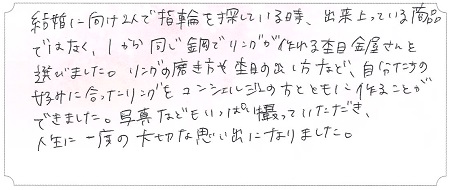 結婚に向け2人で指輪を探している時、出来上っている商品
ではなく、1から同じ鋼でリングが作れる杢目金屋さんと
選びました。リングの磨き方や杢目の出し方など、自分たちの
好みに合ったリングをコンシェルジュの方とともに作ることが
できました。写真などもいっぱい撮っていただき、
人生に一度の大切な思い出になりました。